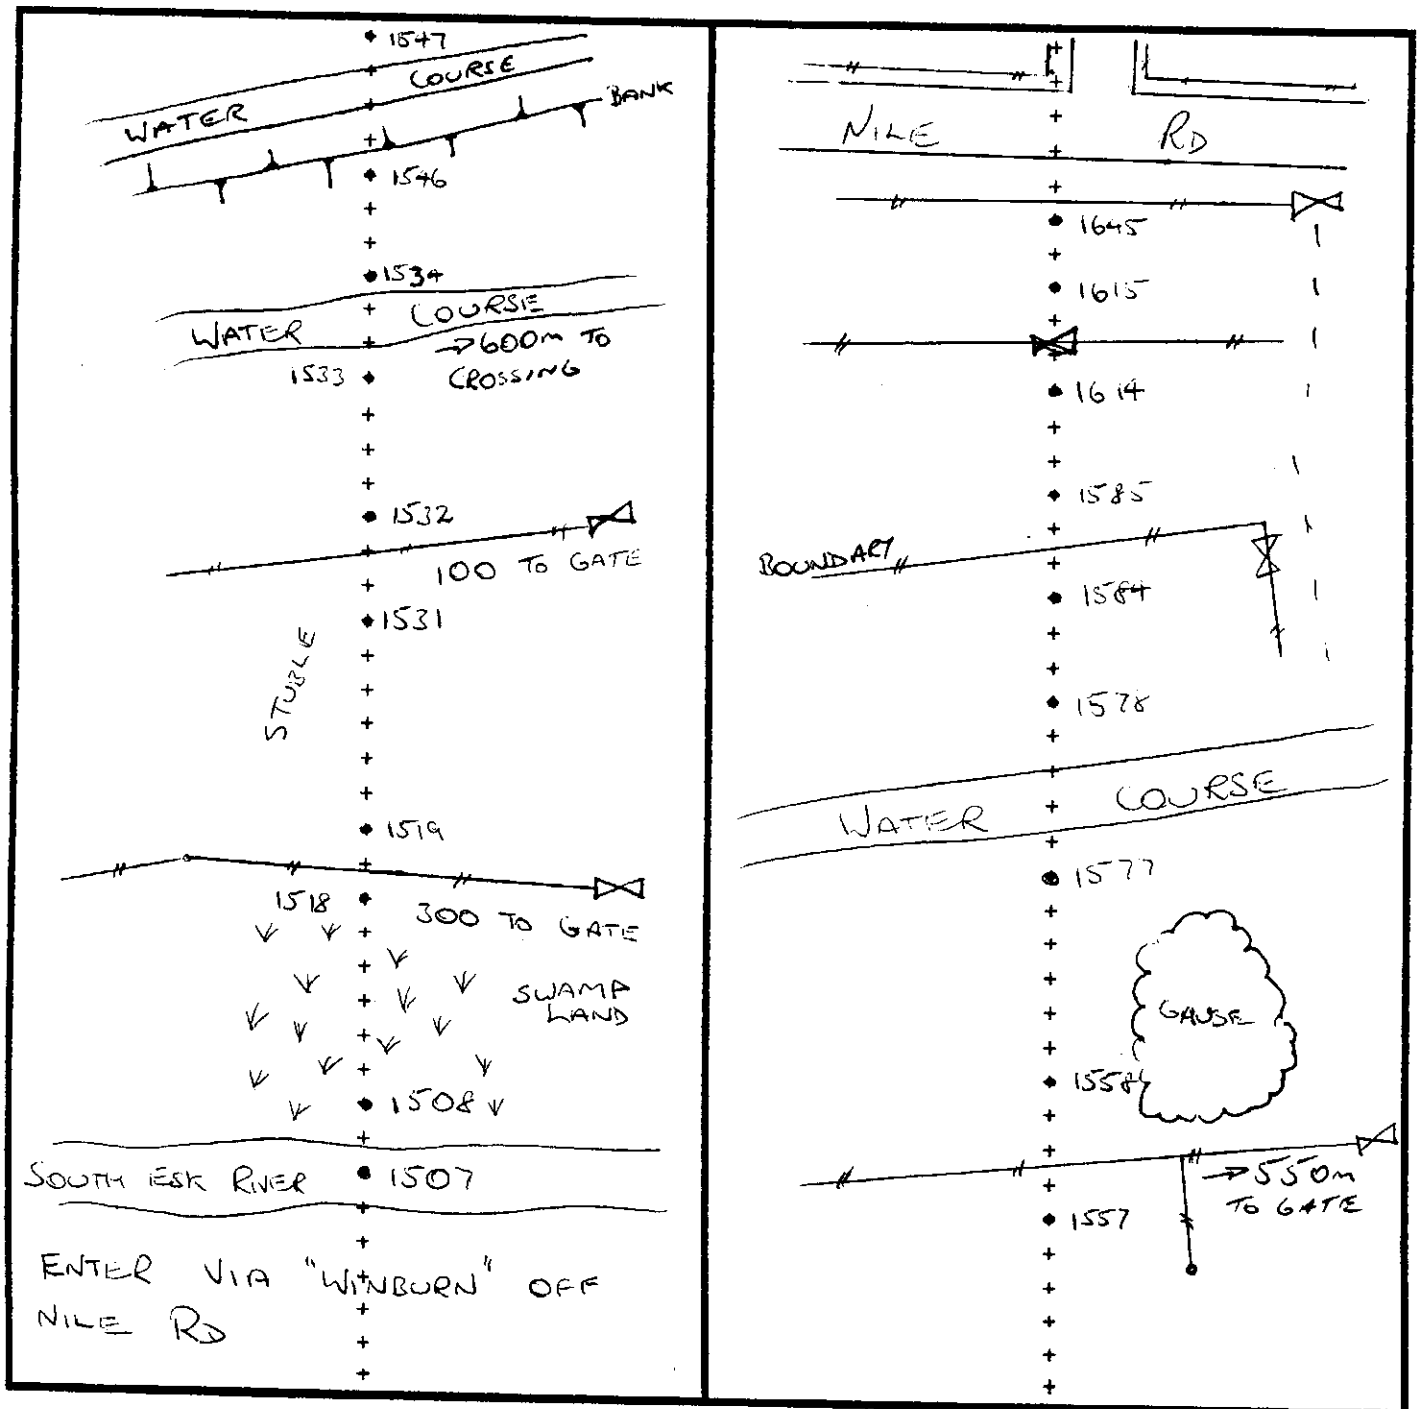 1547
WATER COURSE
BANK
1546
1534
WATER COURSE
→600m TO
CROSSING
1533
1532
100 TO GATE
1531
STUBLE
1519
1518
300 TO GATE
SWAMP
LAND
1508
SOUTH ESK RIVER
1507
ENTER VIA "WINBURN" OFF
NILE RD
NILE RD
1645
1615
1614
1585
BOUNDARY
1584
1578
WATER COURSE
1577
GAUSE
1558
→550m
TO GATE
1557